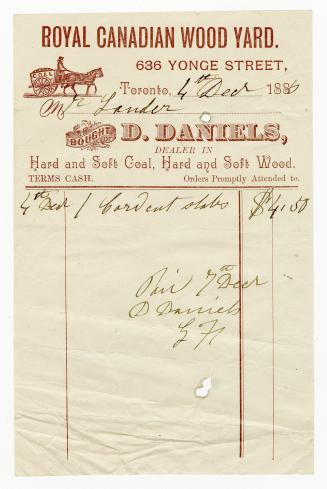 ROYAL CANADIAN WOOD YARD.
636 YONGE STREET,
COAL
Toronto, 4th Decr 1886
Mr Lander
BOUGHT OF D. DANIELS,
DEALER IN
Hard and Soft Coal, Hard and Soft Wood.
TERMS CASH. Orders Promptly Attended to.
4th Decr 1 Cord cut slabs $4.50
7th Decr
D Daniels